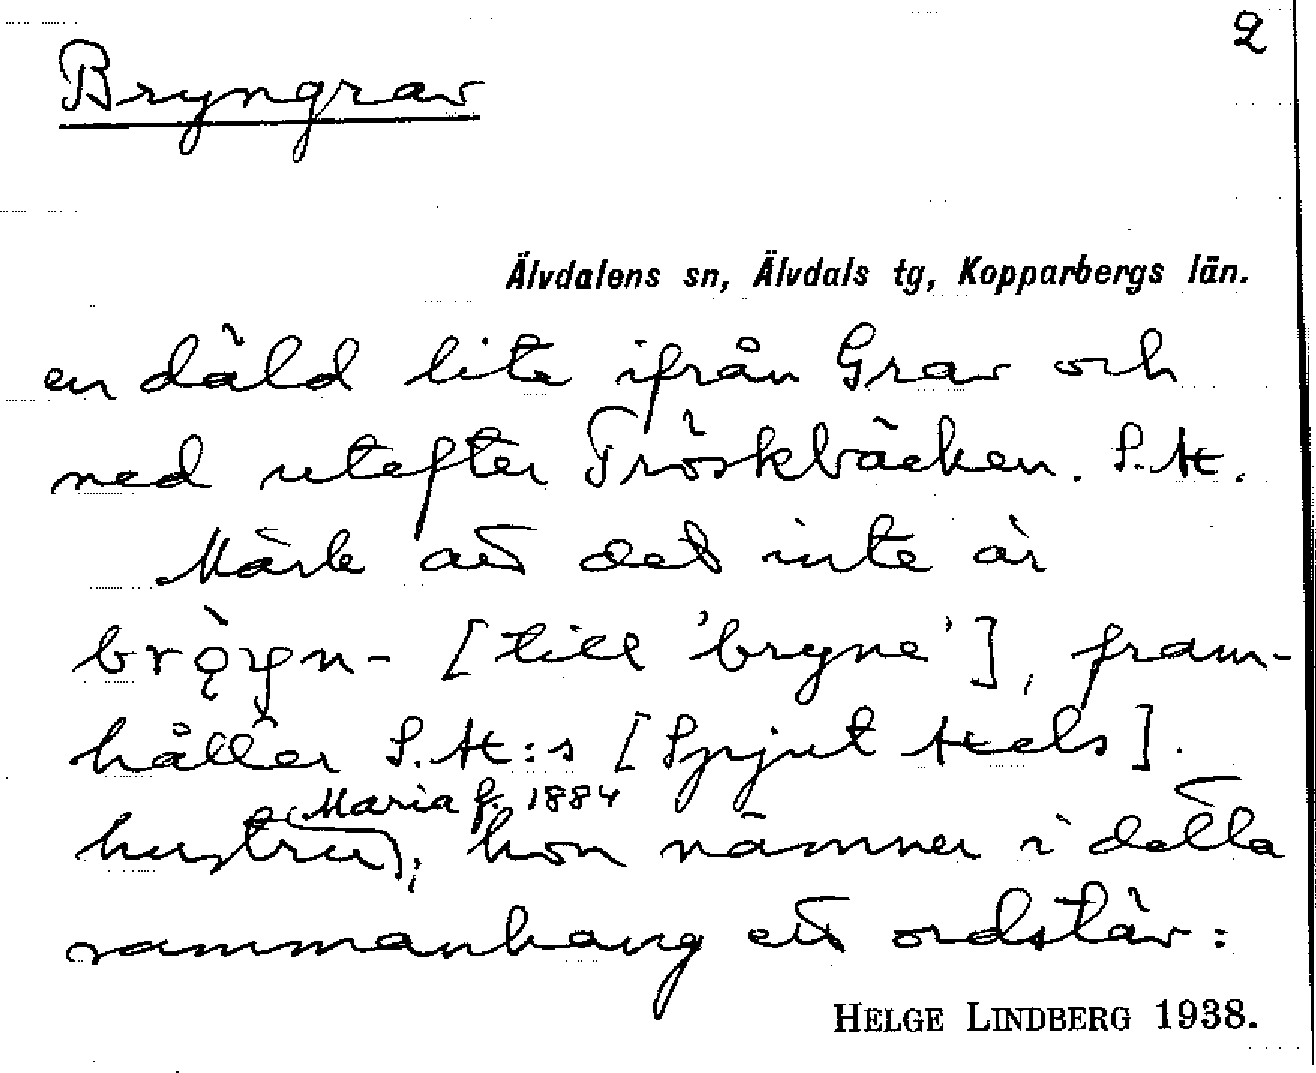 2
Bryngrav
Älvdalens sn, Älvdals tg, Kopparbergs län.
en däld lite ifrån Grav och
ned utefter Tröskbäcken. S.A.
Märk att det inte är
[till 'bryne'], fram-
håller S.A:s [Spjut Axels].
Maria f. 1884
hustru; hon nämner i detta
sammanhang ett ordstäv:
HELGE LINDBERG 1938.